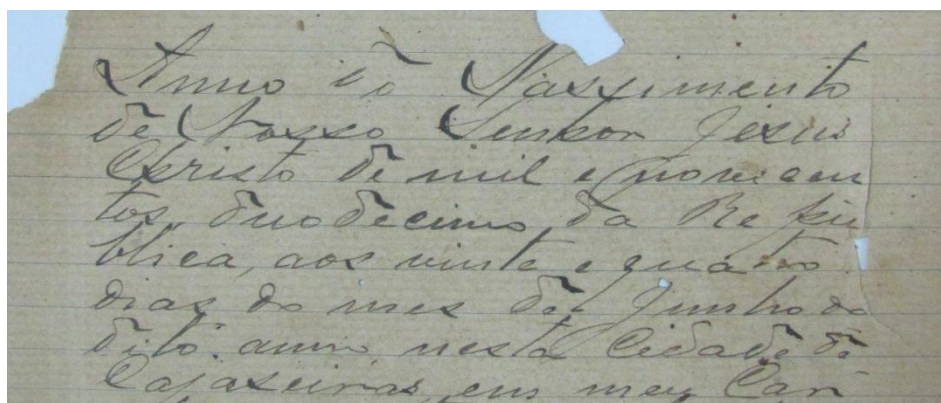 Anno do Nascimento
de Nosso Senhor Jesus
Christo de mil e novecen
tos, duodecimo da Repu
blica, aos vinte e quatro
dias do mes de Junho do
dito anno, nesta Cidade de
Cajaseiras, em meu Car